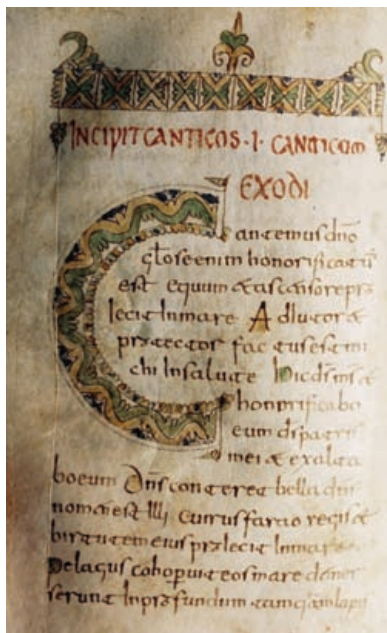 INCIPIT CANTICOS · I · CANTICUM
EXODI
Cantemus dño
gl̃ose enim honorificatus̃
est equum & ascensore pro
iecit In mare Adiutor &
protector factus est mi
chi In salute hic d̃s m̃s &
honorificabo
eum d̃s patris
mei & exalta
bo eum dñs conterет bella dñs
nomen est illi currus farao
birtutem eius proiecit In mare
pelagus cohoperuit eos mare
serunt In profundum tamquam lapis